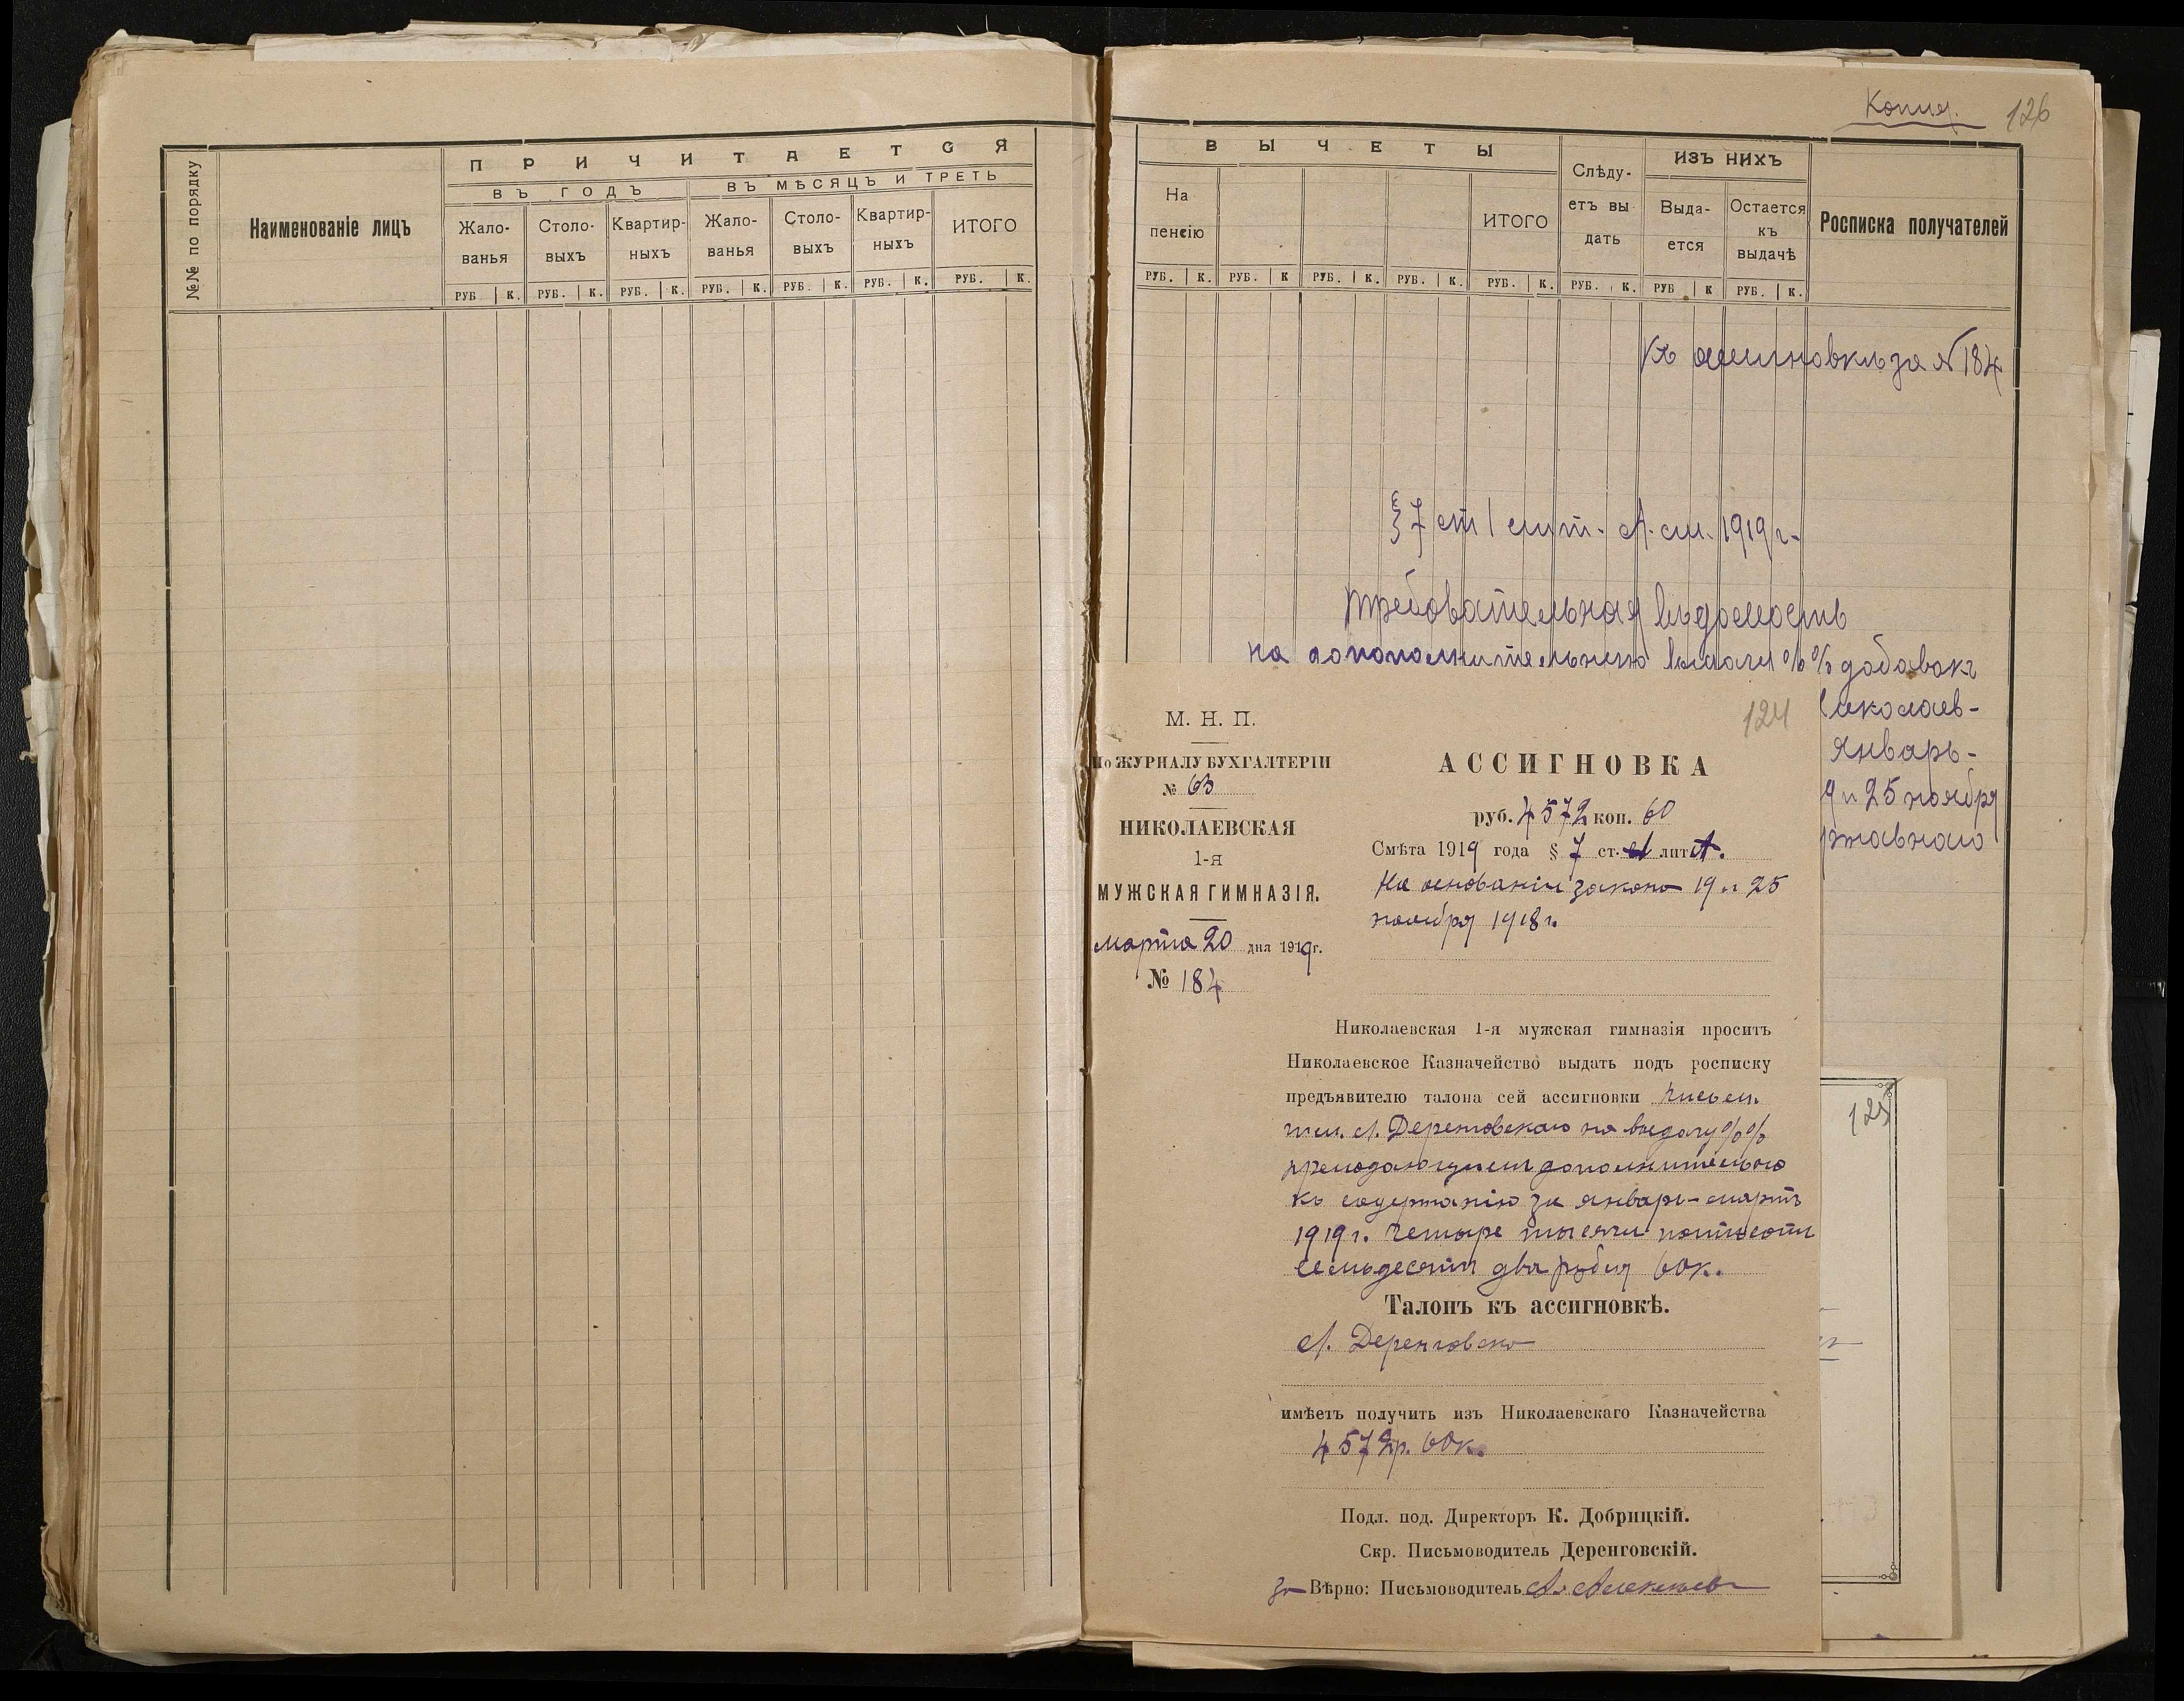 №№ по порядку
Наименованіе лицъ
ПРИЧИТАЕТСЯ
ВЪ ГОДЪ
ВЪ МѢСЯЦЪ И ТРЕТЬ
Жало-
ванья
Столо-
выхъ
Квартир-
ныхъ
Жало-
ванья
Столо-
выхъ
Квартир-
ныхъ
ИТОГО
РУБ К. РУБ. К. РУБ. К. РУБ. К. РУБ. К. РУБ. К. РУБ. К.
Копия. 126
ВЫЧЕТЫ
На
пенсію
ИТОГО
Слѣду-
етъ вы
дать
ИЗЪ НИХЪ
Выда-
ется
Остается
къ
выдачѣ
Росписка получателей
РУБ. К. РУБ. К РУБ. К. РУБ. К. РУБ. К. РУБ. К. РУБ К РУБ. К.
Къ ассигновкѣ за № 184
§ 7 ст 1 лит. А. см. 1919 г.
Требовательная вѣдомость
на дополнительную выдачу %% добавокъ
иколаев-
январь-
9 и 25 ноября
ржавнаго
124
М. Н. П.
По ЖУРНАЛУ БУХГАЛТЕРІИ
№ 63
НИКОЛАЕВСКАЯ
1-я
МУЖСКАЯ ГИМНАЗІЯ.
марта 20 дня 1919г.
№ 184
АССИГНОВКА
руб. 4572 коп. 60
Смѣта 1919 года § 7 ст. 1 лит А.
На основаніи закона 19 и 25
ноября 1918 г.
Николаевская 1-я мужская гимназія проситъ
Николаевское Казначейство выдать подъ росписку
предъявителю талона сей ассигновки письм.
гим. Л. Деренговскаго на выдачу %%
преподающимъ дополнительно
къ содержанію за январь-мартъ
1919 г. четыре тысячи пятьсотъ
семьдесятъ два рубля 60 к.
Талонъ къ ассигновкѣ.
Л. Деренговско
имѣетъ получить изъ Николаевскаго Казначейства
4572 р. 60 к.
Подл. под. Директоръ К. Добрицкій.
Скр. Письмоводитель Деренговскій.
За Вѣрно: Письмоводитель
125